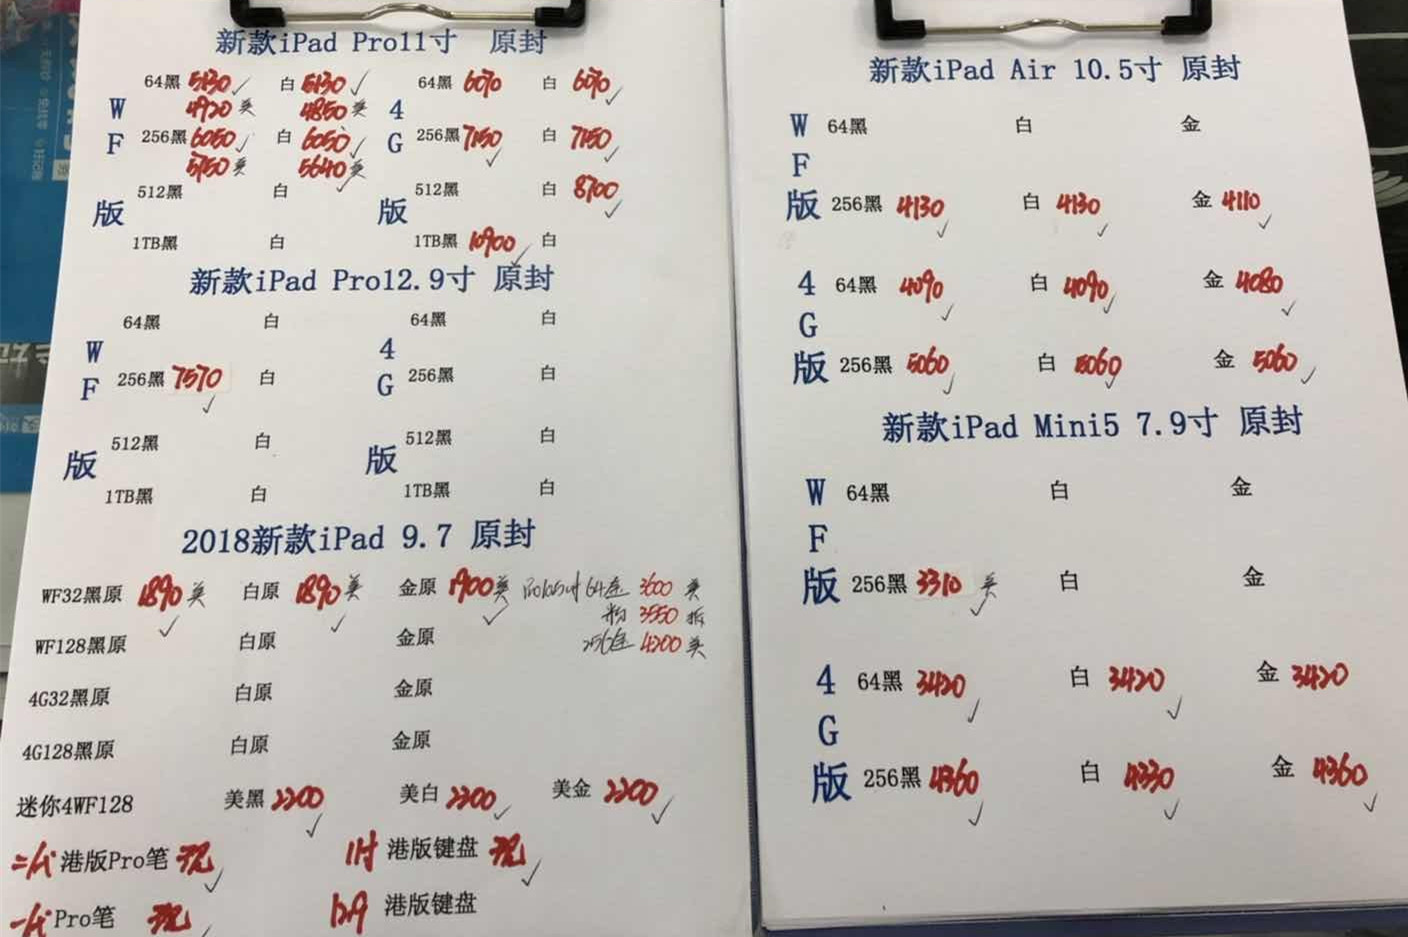 新款iPad Pro11寸 原封
64黑 5130 ✓ 白 5130 ✓ 64黑 6070 白 6070 ✓
W 4920 美 4850 美 4
F 256黑 6050 ✓ 白 6050 ✓ G 256黑 7150 ✓ 白 7150 ✓
5750 美 5640 美 ✓
512黑 白 512黑 白 8700 ✓
版 版
1TB黑 白 1TB黑 10900 ✓ 白
新款iPad Pro12.9寸 原封
64黑 白 64黑 白
W 4
F 256黑 7570 ✓ 白 G 256黑 白
512黑 白 512黑 白
版 版
1TB黑 白 1TB黑 白
2018新款iPad 9.7 原封
WF32黑原 1890 美 ✓ 白原 1890 美 ✓ 金原 1900 美 ✓ Pro10.5寸 64金 3600 美
粉 3550 拆
256金 4200 美
WF128黑原 白原 金原
4G32黑原 白原 金原
4G128黑原 白原 金原
迷你4WF128 美黑 2200 ✓ 美白 2200 ✓ 美金 2200 ✓
二代 港版Pro笔 现 ✓ 11寸 港版键盘 现 ✓
一代 Pro笔 现 12.9 港版键盘
新款iPad Air 10.5寸 原封
W 64黑 白 金
F
版 256黑 4130 ✓ 白 4130 ✓ 金 4110 ✓
4 64黑 4090 ✓ 白 4090 ✓ 金 4080 ✓
G
版 256黑 5060 ✓ 白 5060 ✓ 金 5060 ✓
新款iPad Mini5 7.9寸 原封
W 64黑 白 金
F
版 256黑 3310 美 ✓ 白 金
4 64黑 3420 ✓ 白 3420 ✓ 金 3420
G
版 256黑 4360 ✓ 白 4330 ✓ 金 4360 ✓